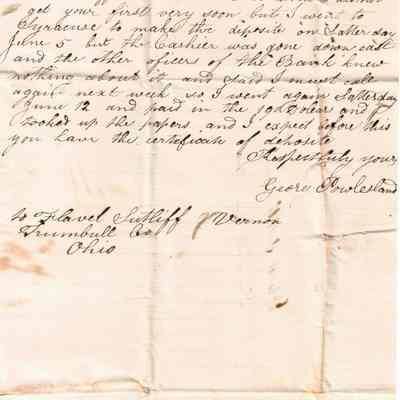 get your first very soon but I went to
Syracuse to make the deposite on Satterday
June 5 but the Cashier was gone down east
and the other oficers of the Bank knew
nothing about it and said I must call
again next week so I went again Satterday
June 12 and paid in the Dolars and
looked up the papers and I expect before this
you have the certeficate of deposite
Respectfuly yours
Geore Powlesland
to Flavel Sutliff Vernon
Trumbull Co
Ohio